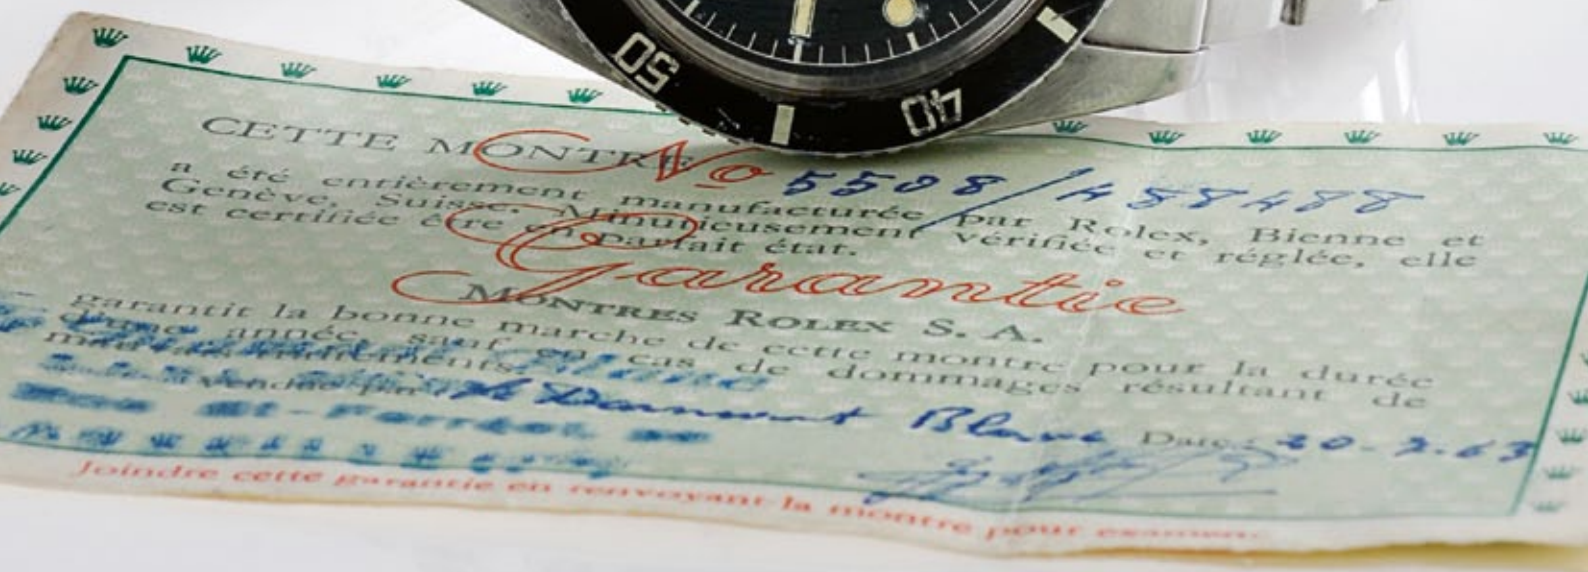 50
40
CETTE MONTRE
No 5508/488488
a été entièrement manufacturée par Rolex, Bienne et
Genève, Suisse. Minutieusement vérifiée et réglée, elle
est certifiée être en parfait état.
Garantie
MONTRES ROLEX S. A.
garantit la bonne marche de cette montre pour la durée
d'une année, sauf en cas de dommages résultant de
Blanc
vendue par: Le Diamant Blanc Date: 20-7.63
Joindre cette garantie en renvoyant la montre pour examen.